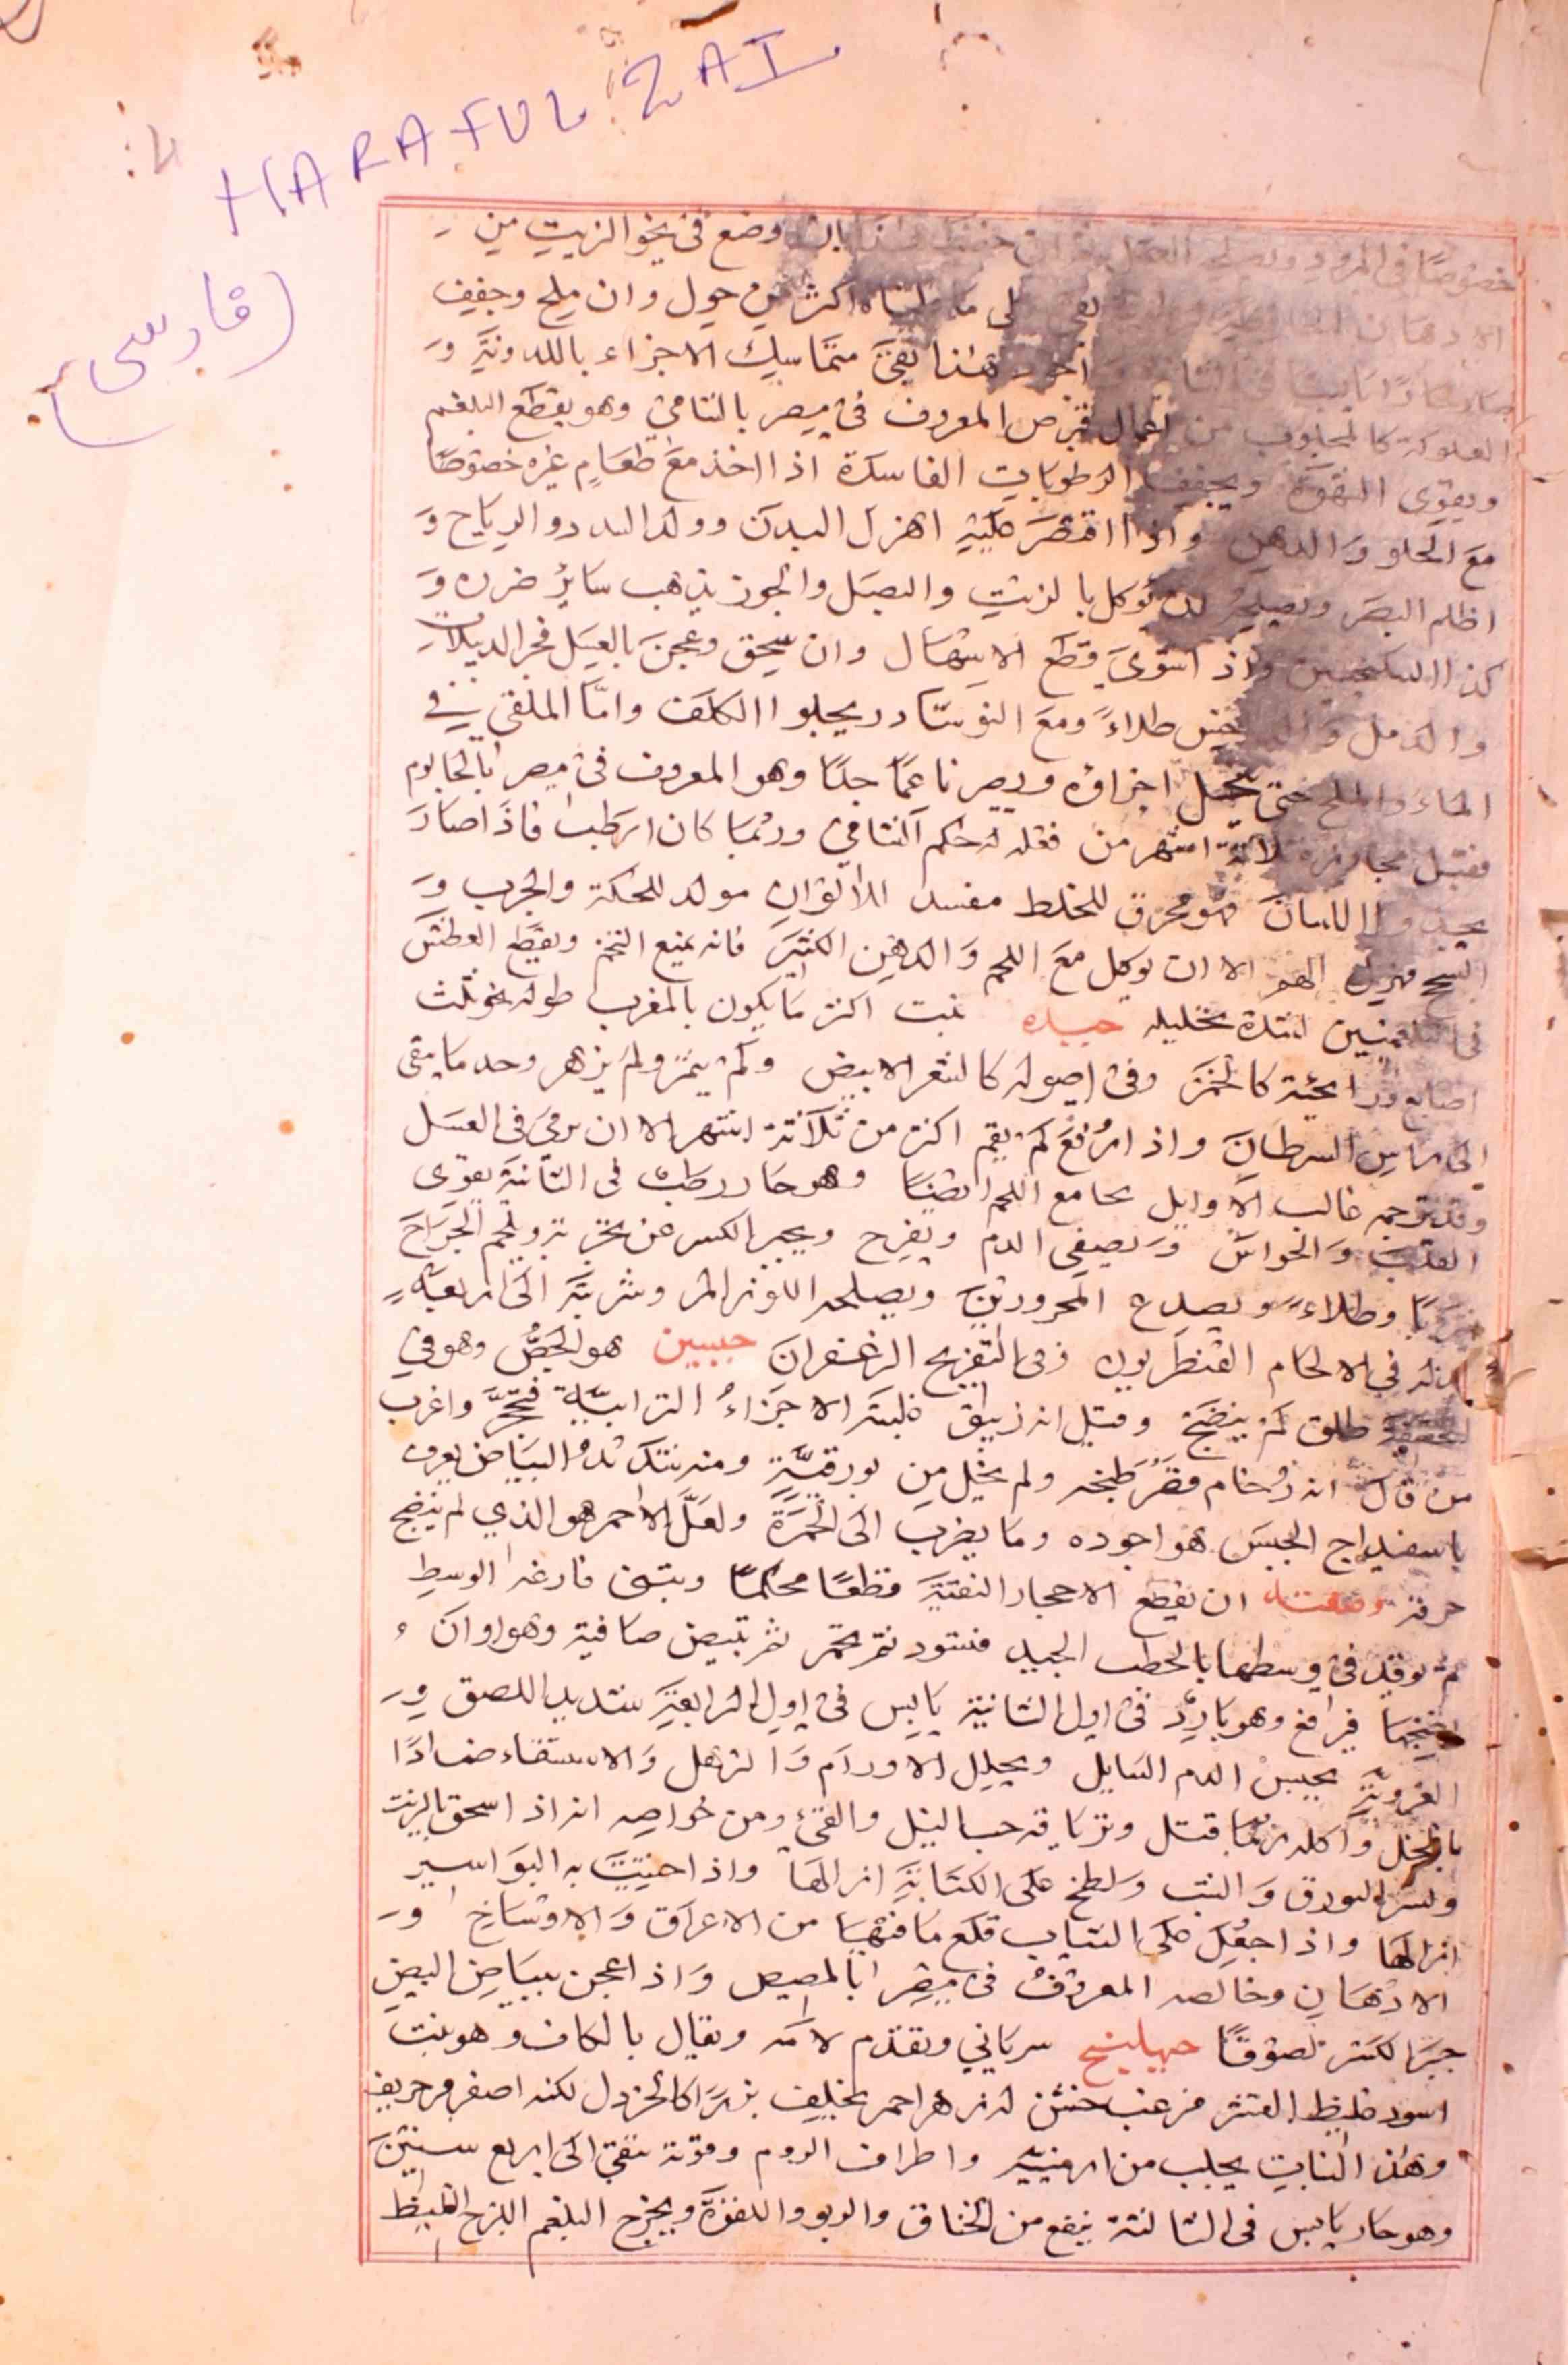 HARAFUL ZAI
(فارسی)
خصوصًا فی المبرود وضع فی نحو الزیت من
الادهان اکثر من حول وان ملح وجفف
صار حارًا یابسًا فی الثا هذا یبقی متماسک الاجزاء باللدونیة و
العلوکة کالمجلوب من اعمال قبرص المعروف فی مصر بالشامی وهو یقطع البلغم
ویقوی الشهوة ویجفف الرطوبات الفاسدة اذا اخذ مع طعام غیره خصوصًا
مع الحلو والدهن واذا اقتصر علیه اهزل البدن وولد السدد والریاح و
اظلم البصر ویصلحه ان یوکل بالزیت والبصل والجوز یذهب سایر ضرره و
کذا السکنجبین واذ استوی قطع الاسهال وان سحق وعجن بالعسل فجر الدبیلات
والدمل و طلاءً ومع النوشادر یجلوا الکلف وامّا الملقی فی
الماء والملح حتی تنحل اجزاؤه ویصیر ناعمًا جدًا وهو المعروف فی مصر بالحالوم
فقبل مجاوزة ثلاثة اشهر من فعله له حکم الشامی وربما کان ارطب فاذا صار
یحذو اللسان فهو محرق للخلط مفسد للالوان مولد للحکة والجرب و
السحج مهزل الا ان یوکل مع اللحم والدهن الکثیر فانه یمنع التخم ویقطع العطش
فی المبلغمین لشدة تحلیله جبره نبت اکثر ما یکون بالمغرب طوله نحو ثلث
اصابع ورائحته کالخمر وفی اصوله کالشعر الابیض ولم یثمر ولم یزهر وحد ما یبقی
الی راس السرطان واذا رفع لم یقم اکثر من ثلاثة اشهر الا ان رمی فی العسل
وقد ترجمه غالب الاوایل بجامع اللحم ایضًا وهو حار رطب فی الثانیة یقوی
القلب والحواس ویصفی الدم ویفرح ویجبر الکسر عن تجربة ویلحم الجراح
شربًا وطلاءً ویصدع المحرورین ویصلحه اللوز المر وشربته الی اربعة
بدله فی الالحام القنطریون وفی التفریح الزعفران جبسین هو الجصُّ وهو فی
الحقیقة طلق لم ینضج وقیل انه زیبق غلبته الاجزاءُ الترابیّة فتحجرّ واغرب
من قال انه رُخام قصر طبخه ولم یخل من بورقیّة ومنه شدید البیاض یعرف
باسفیداج الجبس هو اجوده وما یضرب الی الحمرة ولعلّ الاحمر هو الذی لم ینضج
حرقه وصفته ان یقطع الاحجار النقیة قطعًا محکمًا ویبنی فارغة الوسط
ثم یوقد فی وسطها بالحطب الجید فتسود ثم تحمر ثم تبیض صافیة وهو اوان
نضجها فیرفع وهو باردٌ فی اول الثانیة یابس فی اول الرابعة شدید اللصق و
الغرویّة یحبس الدم السایل ویحلل الاورام والترهل والاستسقاء ضمادًا
بالخل واکله ربما قتل وتریاقه حب النیل والقیء ومن خواصه انه اذا سحق بالزیت
ویسیر البورق والشب ولطخ علی الکتابة ازالها واذا حشیت به البواسیر
ازالها واذا جعل علی الثیاب قلع ما فیها من الاعراق والاوساخ و
الادهان وخالصه المعروف فی مصر بالمصیص واذا عجن ببیاض البیض
جبر الکسر لصوقًا جبهلینج سریانی وتقدم لامه ویقال بالکاف وهو نبت
اسود غلیظ القشر مزغب خشن له زهر احمر یخلف بزرًا کالخردل لکنه اصفر مر حریف
وهذا النبات یجلب من ارمنیه واطراف الروم وقوته تبقی الی اربع سنین
وهو حار یابس فی الثالثة ینفع من الخناق والربو واللقوة ویخرج البلغم اللزج الغلیظ